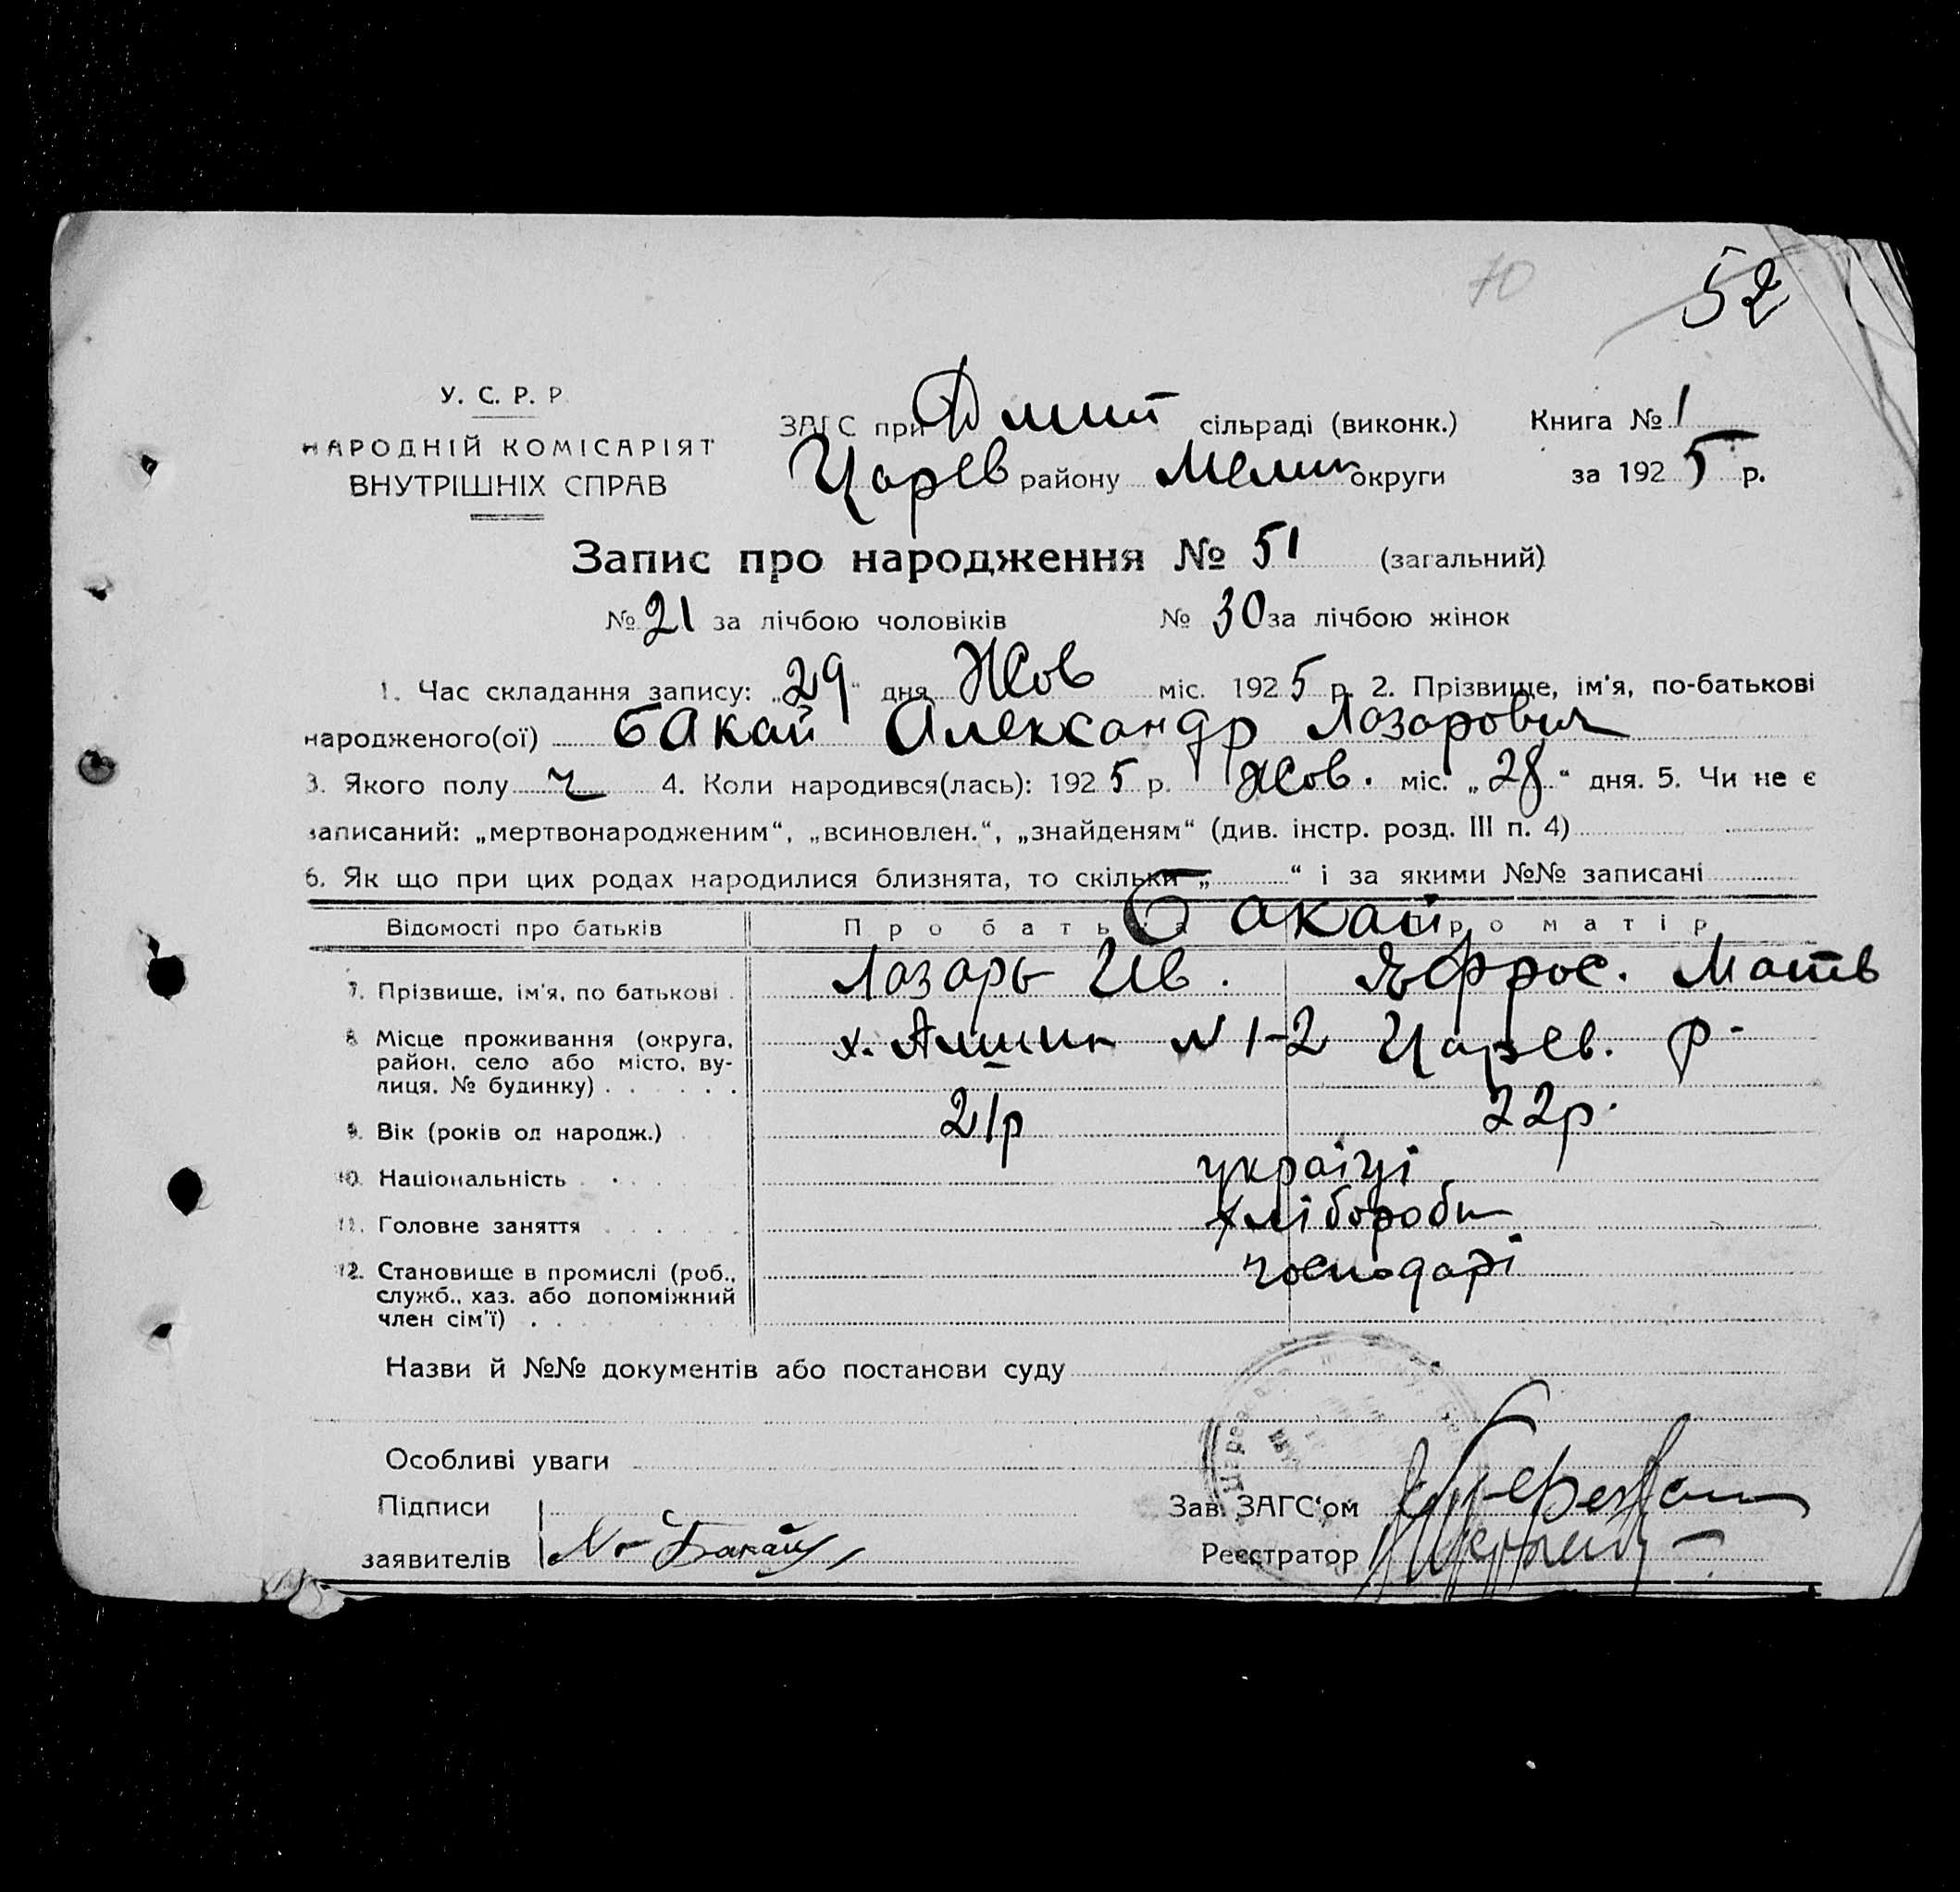 70
52
У. С. Р. Р
НАРОДНІЙ КОМІСАРІЯТ
ВНУТРІШНІХ СПРАВ
ЗАГС при Дмит сільраді (виконк.) Книга № 1
Царев району Мелит округи за 1925 р.
Запис про народження № 51 (загальний)
№ 21 за лічбою чоловіків № 30 за лічбою жінок
1. Час складання запису: „29“ дня Жов міс. 1925 р. 2. Прізвище, ім'я, по-батькові
народженого(ої) Бакай Александр Лазарович
3. Якого полу ч 4. Коли народився(лась): 1925 р. Жов. міс. „28“ дня. 5. Чи не є
записаний: „мертвонародженим“, „всиновлен.“, „знайденям“ (див. інстр. розд. III п. 4)
6. Як що при цих родах народилися близнята, то скільки „ “ і за якими №№ записані
Відомості про батьків Про батька Про матір
Бакай
7. Прізвище, ім'я, по батькові Лазарь Ив. Ефрос. Матв
8. Місце проживання (округа, х. № 1-2 Царев. р-
район, село або місто, ву-
лиця, № будинку)
9. Вік (років од народж.) 21р 22р.
10. Національність украіці
11. Головне заняття хлібороби
12. Становище в промислі (роб., господарі
служб., хаз. або допоміжний
член сім'ї)
Назви й №№ документів або постанови суду
Особливі уваги
Підписи
Зав. ЗАГС‘ом
заявителів Бакай
Реєстратор